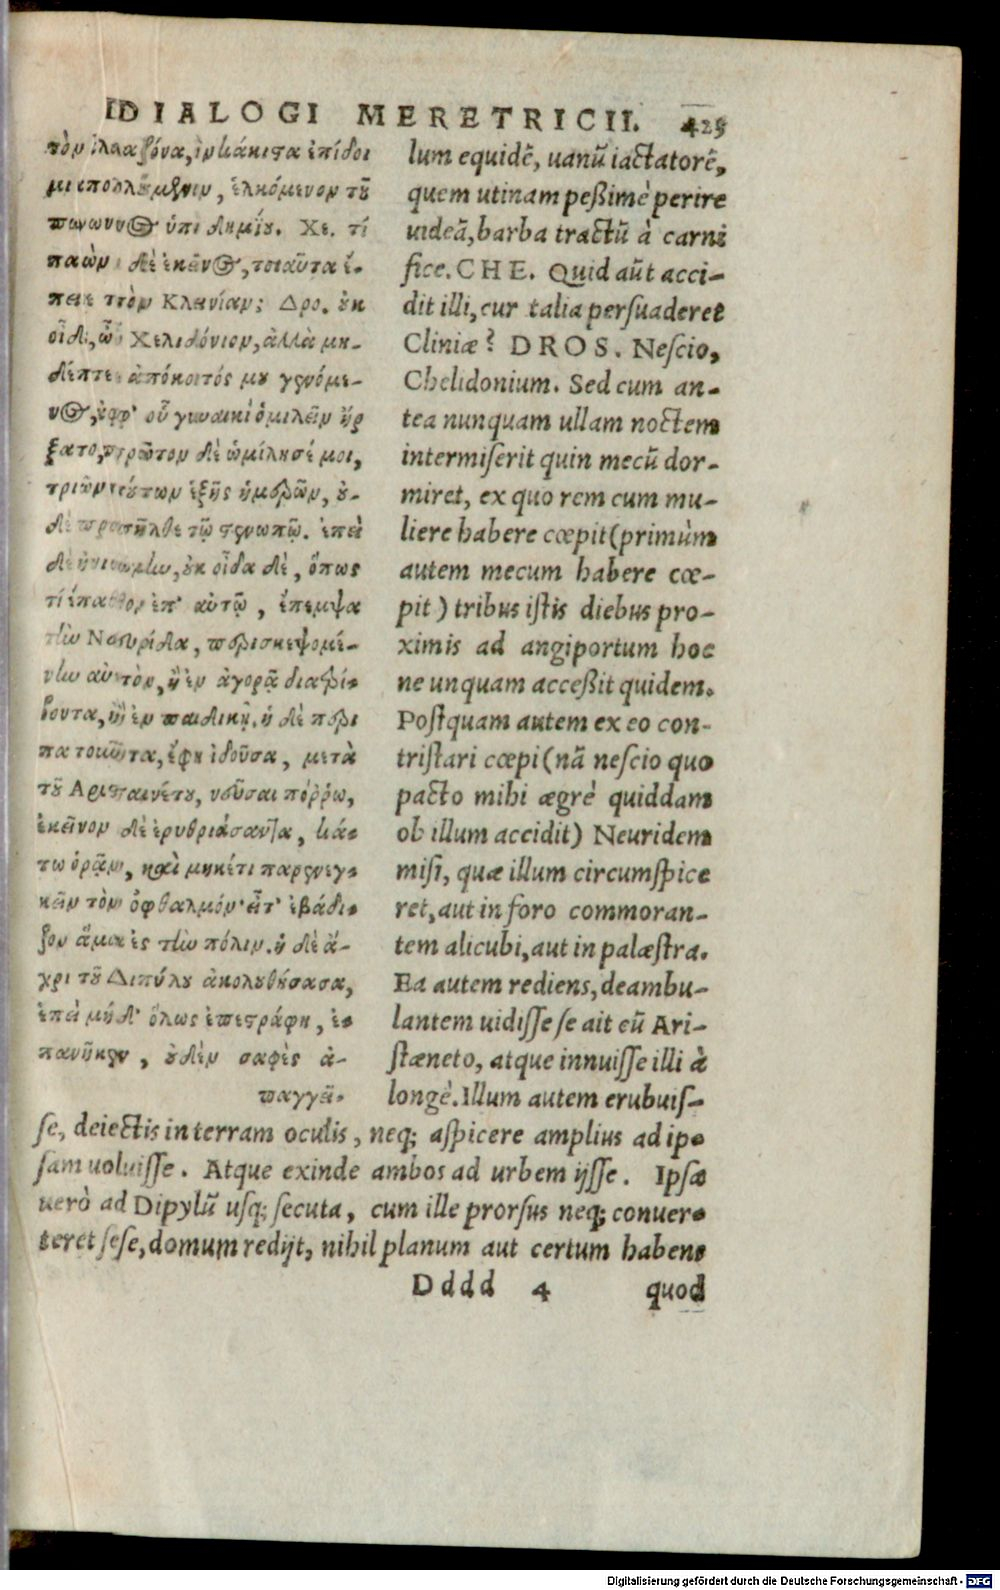 DIALOGI MERETRICII. 425
τὸν ἀλαζόνα, ὃν κάκιστα ἐπίδοι
μι ἀπολλύμενον, ἑλκόμενον τοῦ
πώγωνος ὑπὸ δημίου. Χε. τί
παθὼν δὲ ἐκεῖνος, τοιαῦτα ἔ-
πεισε τὸν Κλεινίαν; Δρο. οὐκ
οἶδα, ὦ Χελιδόνιον, ἀλλὰ μη-
δέποτε ἀπόκοιτός μου γενόμε-
νος, ἀφ' οὗ γυναικὶ ὁμιλεῖν ἤρ
ξατο, πρῶτον δὲ ὡμίλησέ μοι,
τριῶν τούτων ἑξῆς ἡμερῶν, οὐ-
δὲ προσῆλθε τῷ στενωπῷ. ἐπεὶ
δὲ ἠνιώμην, οὐκ οἶδα δὲ, ὅπως
τί ἔπαθον ἐπ' αὐτῷ, ἔπεμψα
τὴν Νευρίδα, περισκεψομέ-
νην αὐτὸν, ἢ ἐν ἀγορᾷ διατρί-
βοντα, ἢ ἐν ποικίλῃ. ἡ δὲ περι
πατοῦντα, ἔφη ἰδοῦσα, μετὰ
τοῦ Ἀρισταινέτου, νεῦσαι πόρρω,
ἐκεῖνον δὲ ἐρυθριάσαντα, κά-
τω ὁρᾶν, καὶ μηκέτι παρενεγ-
κεῖν τὸν ὀφθαλμόν· εἶτ' ἐβάδι-
ζον ἅμα ἐς τὴν πόλιν. ἡ δὲ ἄ-
χρι τοῦ Διπύλου ἀκολουθήσασα,
ἐπεὶ μήδ' ὅλως ἐπεστράφη, ἐ-
πανῆκεν, οὐδὲν σαφὲς ἀ-
παγγεῖ-
lum equidē, uanū iactatorē,
quem utinam peßimè perire
uideā, barba tractū à carni
fice. CHE. Quid aūt acci-
dit illi, cur talia persuaderet
Cliniæ? DROS. Nescio,
Chelidonium. Sed cum an-
tea nunquam ullam noctem
intermiserit quin mecū dor-
miret, ex quo rem cum mu-
liere habere cœpit (primùm
autem mecum habere cœ-
pit) tribus istis diebus pro-
ximis ad angiportum hoc
ne unquam acceßit quidem.
Postquam autem ex eo con-
tristari cœpi (nā nescio quo
pacto mihi ægrè quiddam
ob illum accidit) Neuridem
misi, quæ illum circumspice
ret, aut in foro commoran-
tem alicubi, aut in palæstra.
Ea autem rediens, deambu-
lantem uidisse se ait eū Ari-
stæneto, atque innuisse illi à
longè. Illum autem erubuis-
se, deiectis in terram oculis, neq; aspicere amplius ad ip-
sam uoluisse. Atque exinde ambos ad urbem ijsse. Ipsa
uerò ad Dipylū usq; secuta, cum ille prorsus neq; conuer-
teret sese, domum redijt, nihil planum aut certum habens
Dddd 4 quod
Digitalisierung gefördert durch die Deutsche Forschungsgemeinschaft - DFG